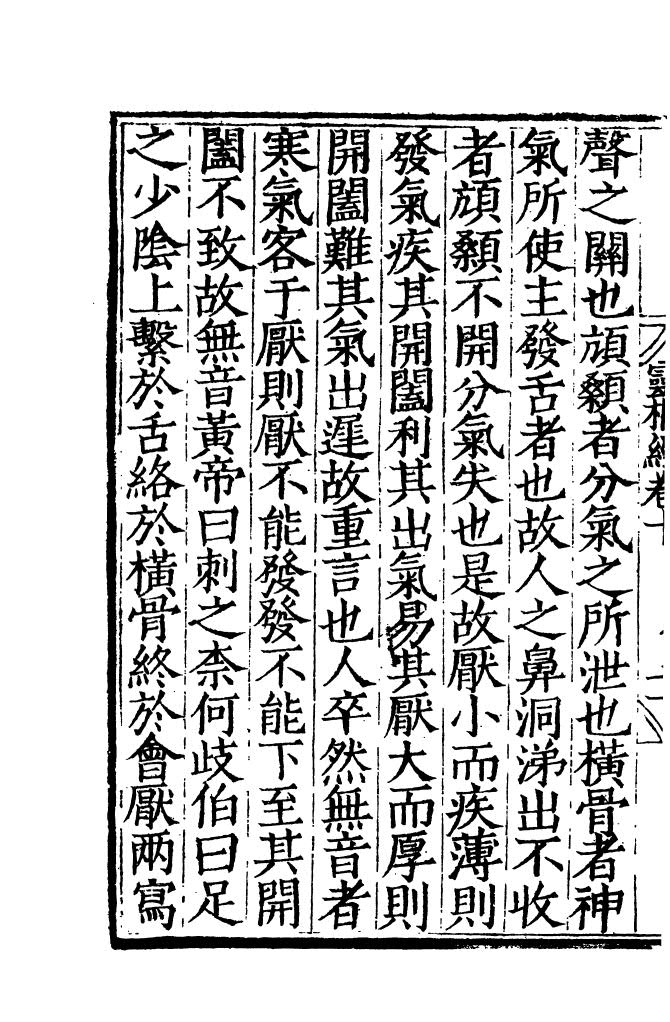 聲之關也頏顙者分氣之所泄也橫骨者神
氣所使主發舌者也故人之鼻洞涕出不收
者頏顙不開分氣失也是故厭小而疾薄則
發氣疾其開闔利其出氣易其厭大而厚則
開闔難其氣出遲故重言也人卒然無音者
寒氣客于厭則厭不能發發不能下至其開
闔不致故無音黃帝曰刺之柰何歧伯曰足
之少陰上繫於舌絡於橫骨終於會厭兩寫